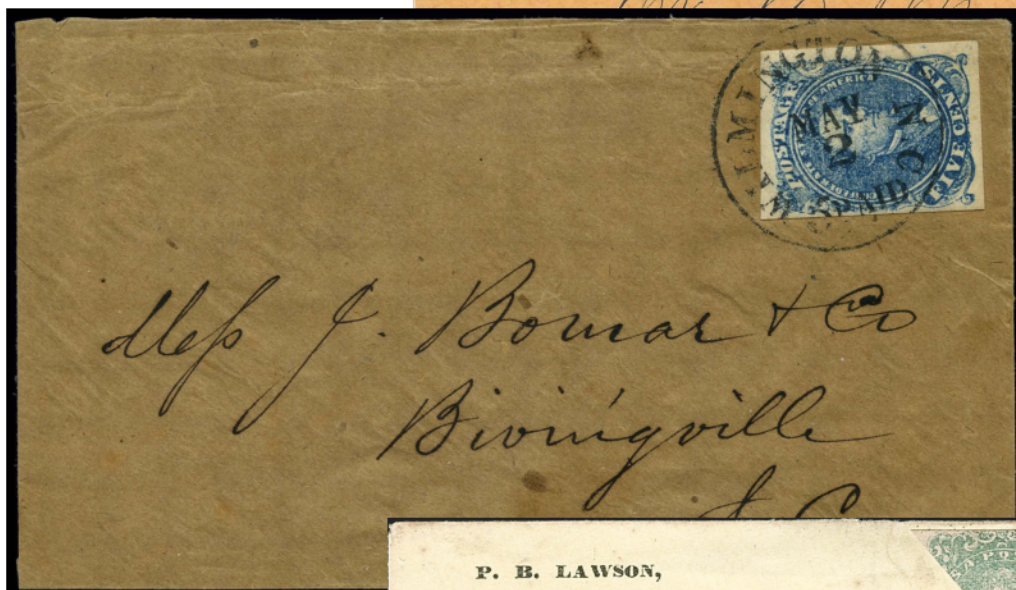 WILMINGTON N C
MAY
2
5 PAID
POSTAGE
FIVE CENTS
Mess J. Bomar & Co
Bivingville
S C
P. B. LAWSON,